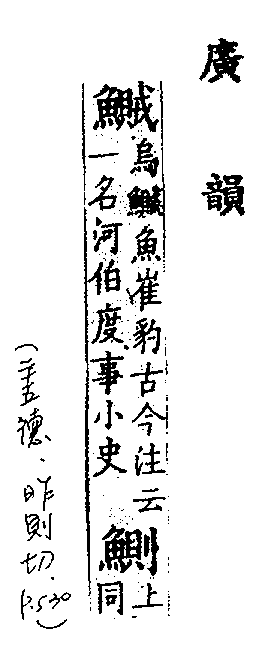 廣韻
鱡烏鱡魚崔豹古今注云一名河伯度事小史鰂上同
(二十五德．昨則切．P.530)